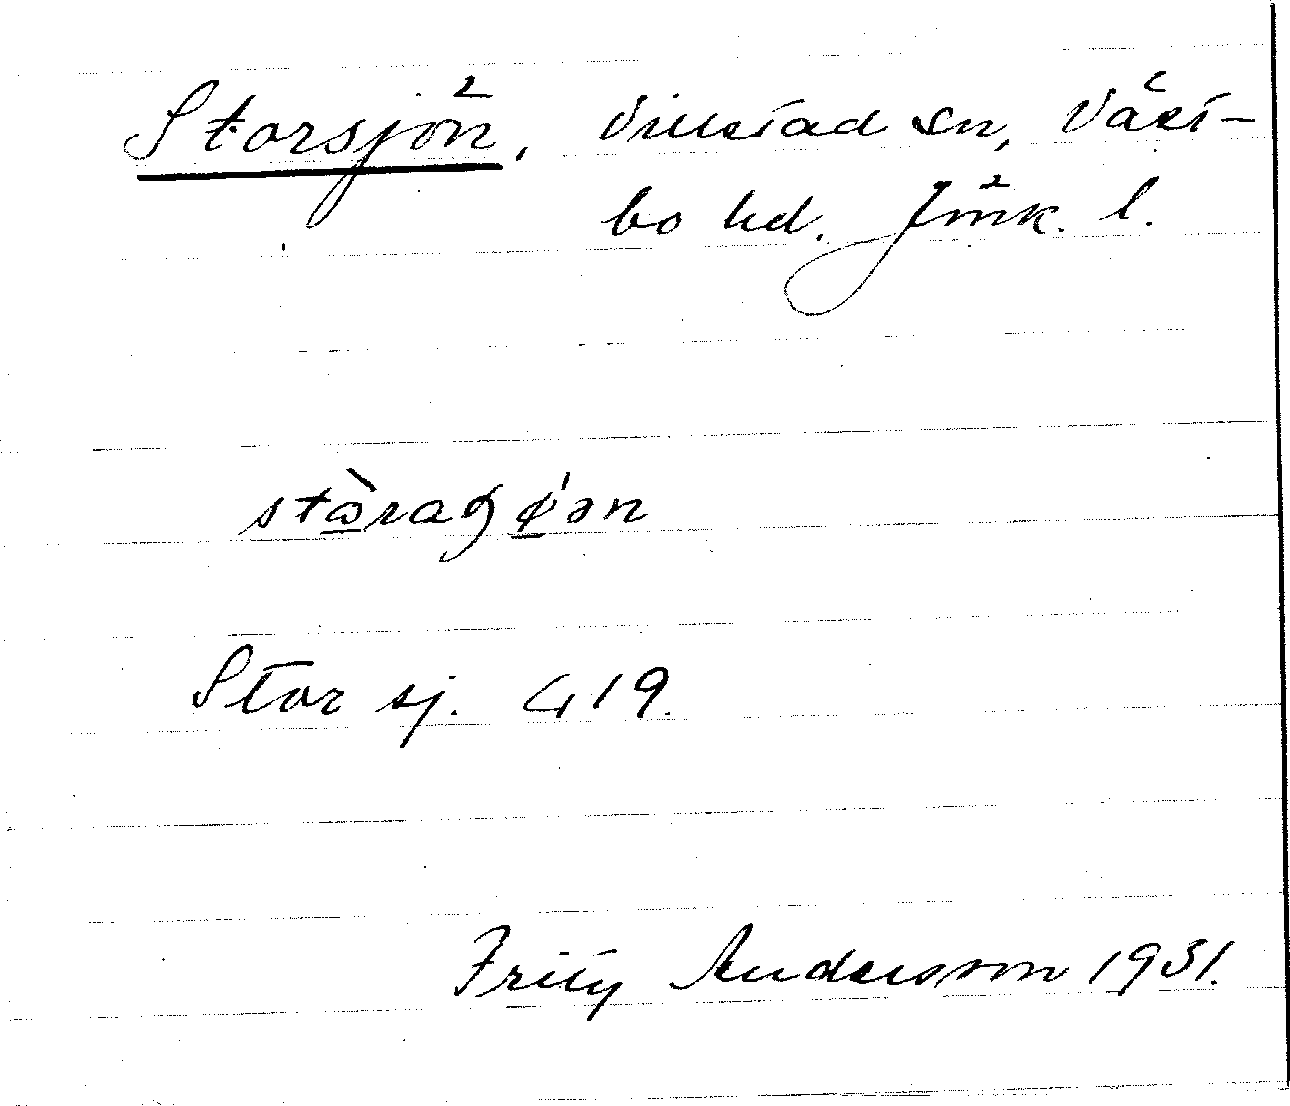 Storsjön, Villstad sn, Väst-
bo hd. Jönk. l.
stòraʂǿən
Stor sj. G 19.
Fritz Andersson 1931.